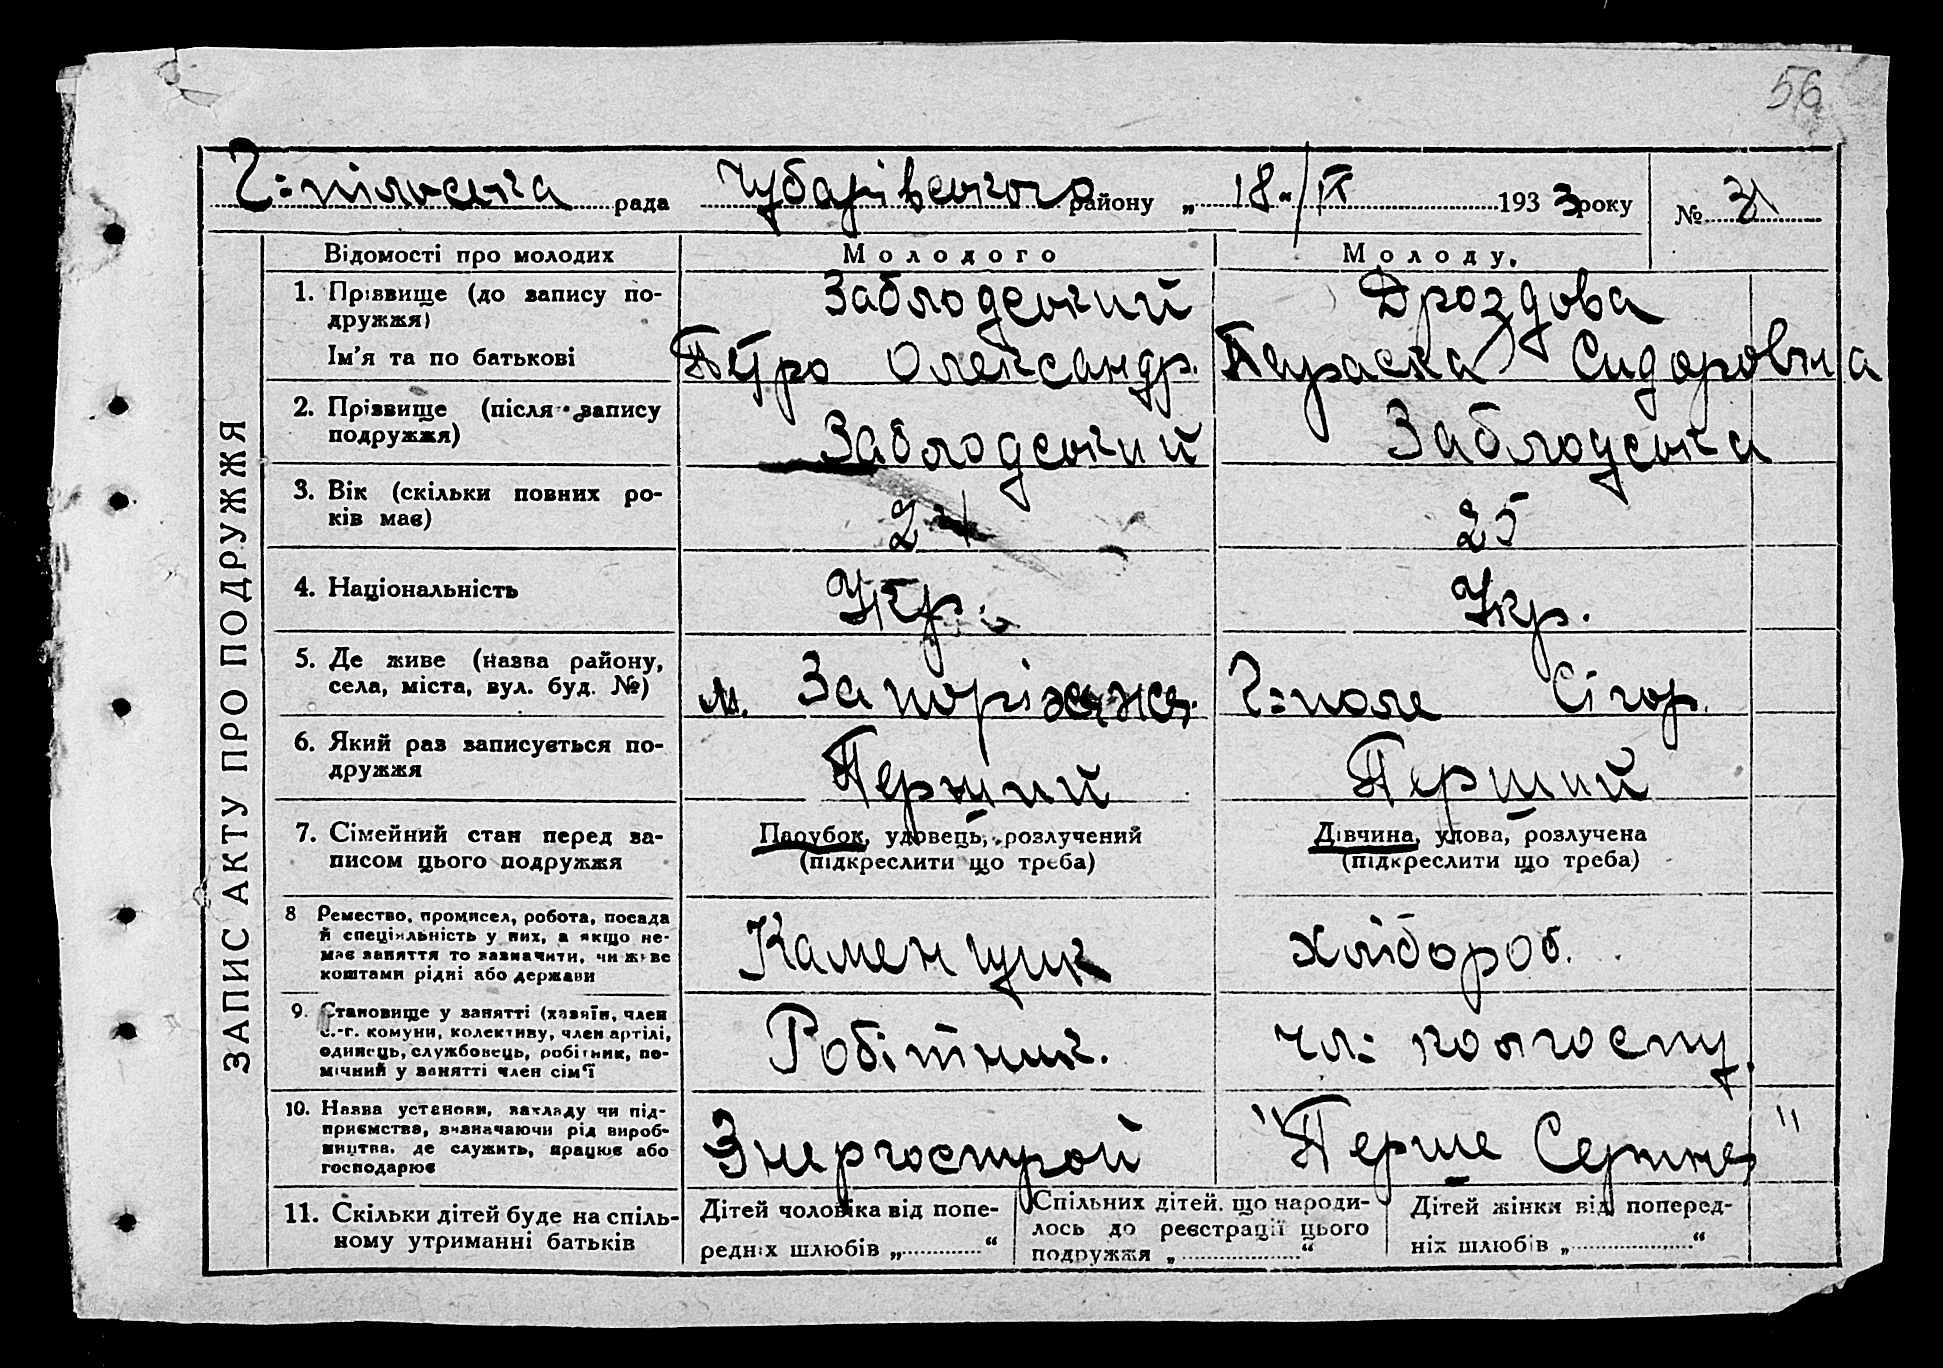 56
Г=пільська рада Чубарівського району „ 18 “ / IX 1933 року № 31
ЗАПИС АКТУ ПРО ПОДРУЖЖЯ
Відомості про молодих
Молодого
Молоду.
1. Прізвище (до запису по-
дружжя)
Заблодський
Дроздова
Ім'я та по батькові
Петро Олександр.
Параска Сидоровна
2. Прізвище (після запису
подружжя)
Заблодський
Заблодська
3. Вік (скільки повних ро-
ків має)
25
4. Національність
Укр.
Укр.
5. Де живе (назва району,
села, міста, вул. буд. №)
м. Запоріжжя.
Г=поле Сігор.
6. Який раз записується по-
дружжя
Перший
Перший
7. Сімейний стан перед за-
писом цього подружжя
Парубок, удовець, розлучений
(підкреслити що треба)
Дівчина, удова, розлучена
(підкреслити що треба)
8 Ремество, промисел, робота, посада
й спеціяльність у них, а якщо не-
має заняття то зазначити, чи живе
коштами рідні або держави
Каменщик
хлібороб.
9. Становище у занятті (хазяїн, член
с.-г. комуни, колективу, член артілі,
одинець, службовець, робітник, по-
мічний у занятті член сім'ї
Робітник.
чл: колгоспу.
10. Назва установи, закладу чи під-
приємства, визначаючи рід вироб-
ництва, де служить, працює або
господарює
Энергострой
"Перше Серпня"
11. Скільки дітей буде на спіль-
ному утриманні батьків
Дітей чоловіка від попе-
редніх шлюбів „ “
Спільних дітей, що народи-
лось до реєстрації цього
подружжя „ “
Дітей жінки від поперед-
ніх шлюбів „ “